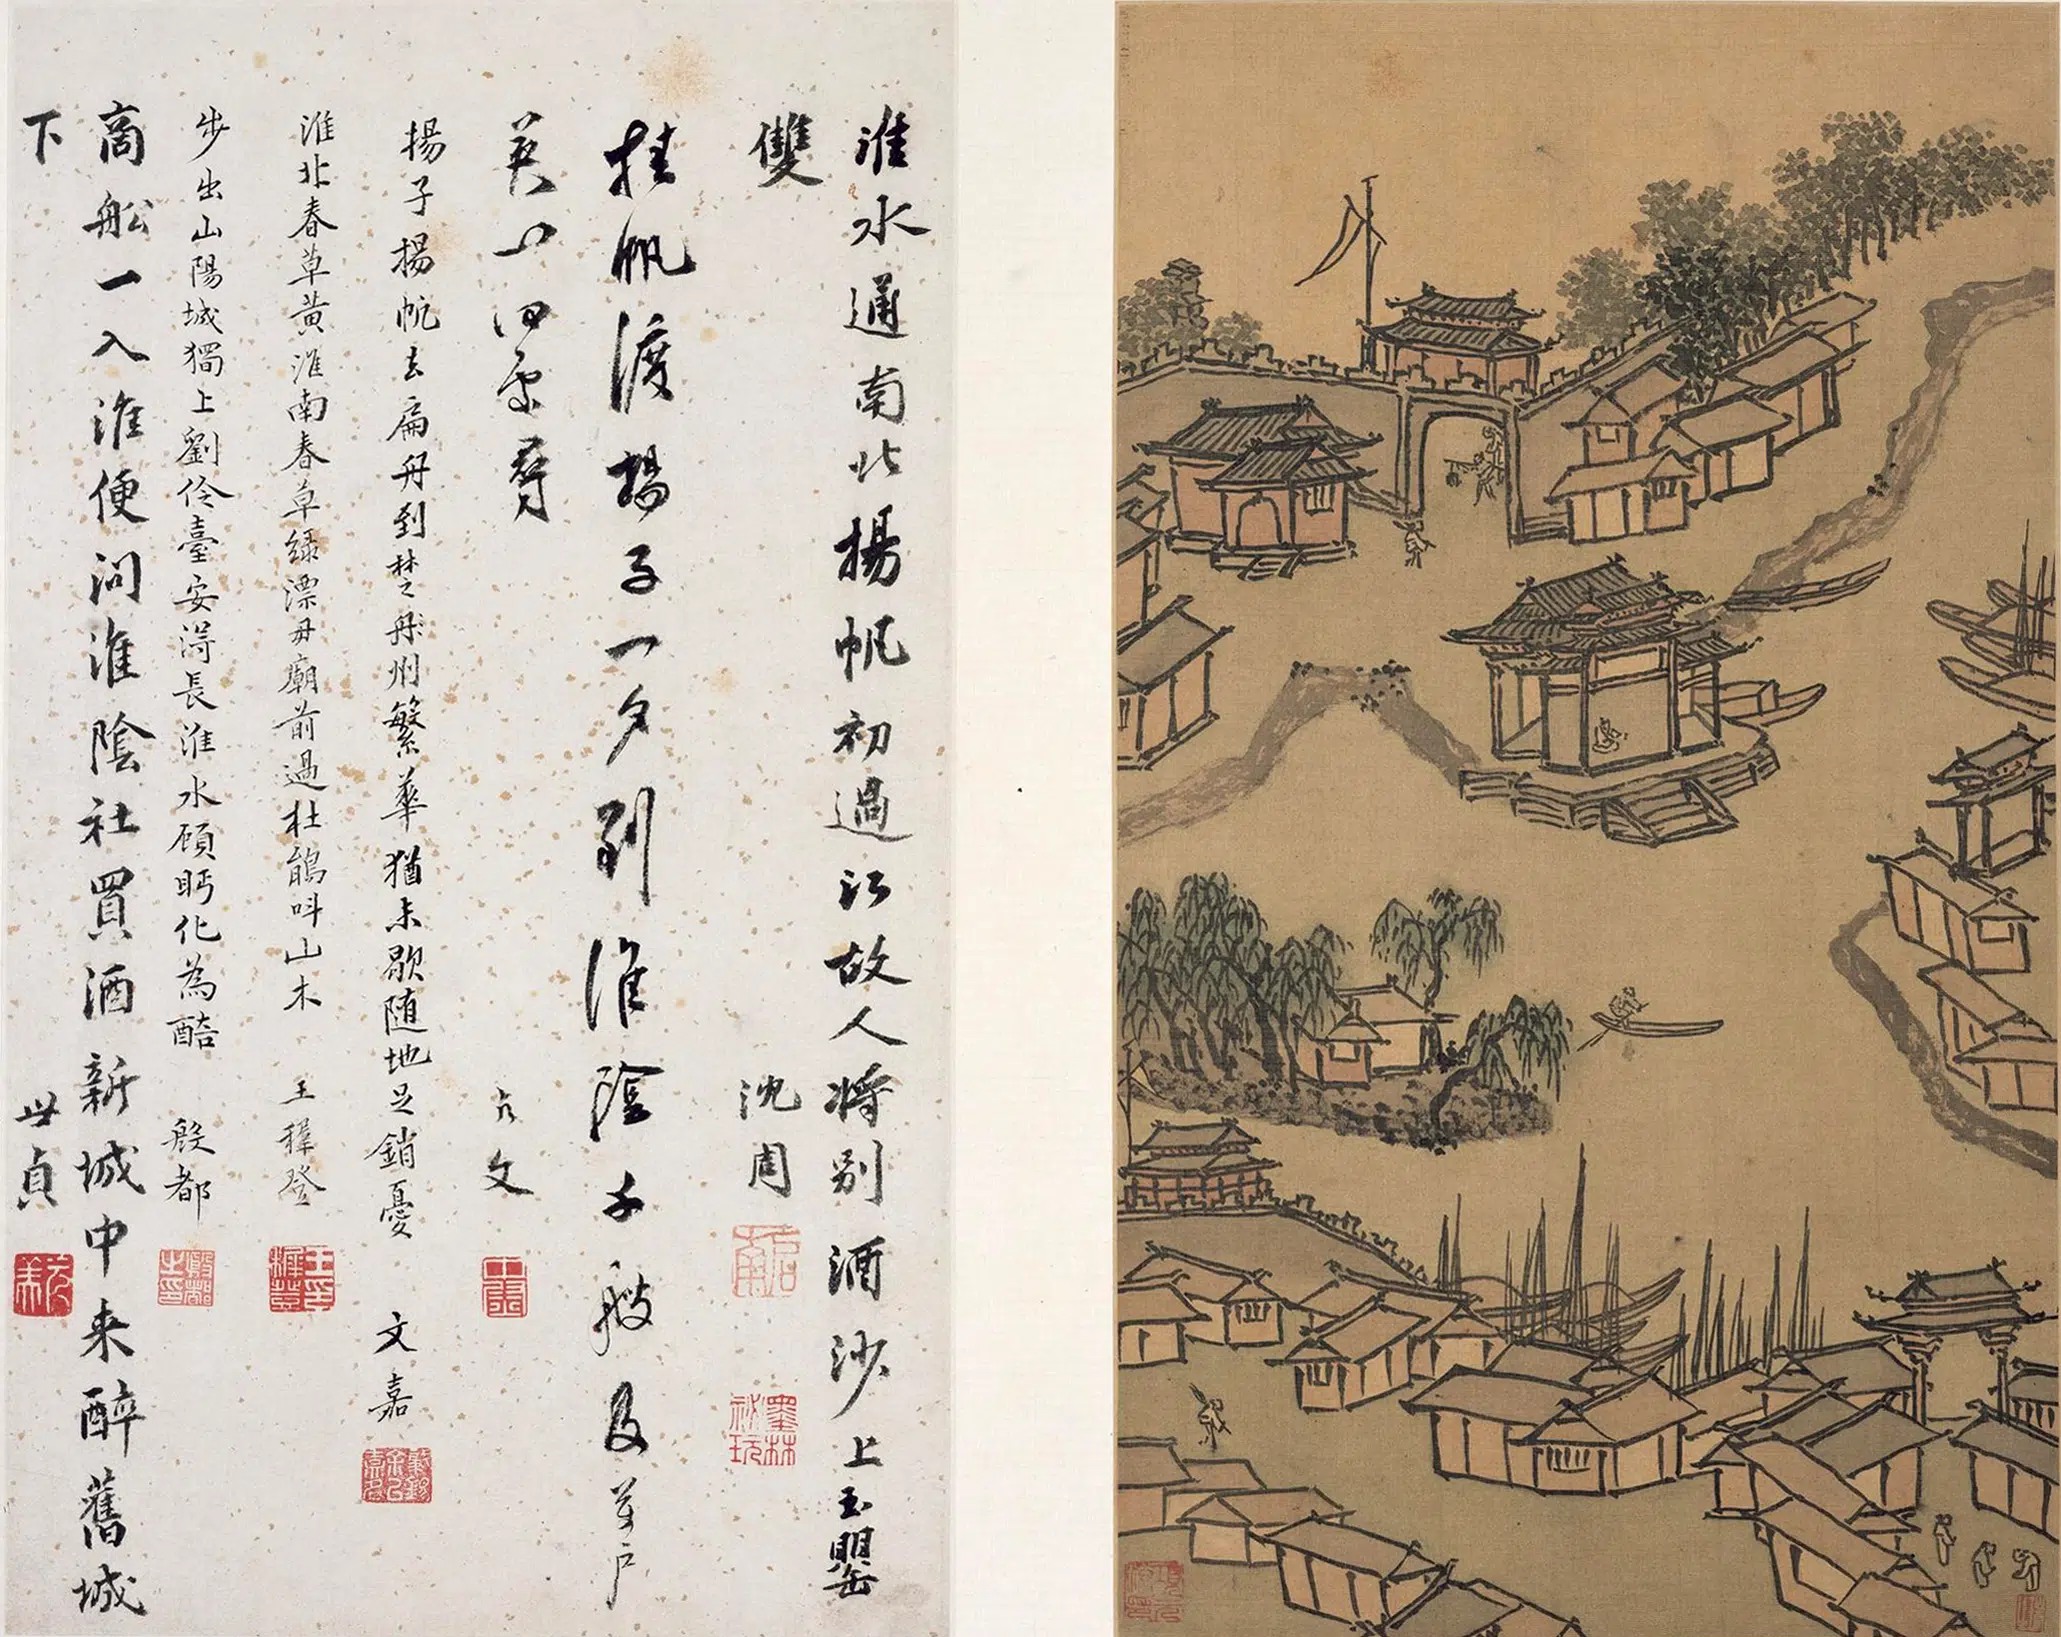 淮水通南北揚帆初過江故人將別酒沙上玉罌
雙
沈周
挂帆渡揚子一夕到淮陰千艘及萬户
英
文
揚子揚帆去扁舟到楚州繁華猶未歇随地足銷憂
文嘉
淮北春草黄淮南春草緑漂母廟前過杜鵑呌山木
王穉登
步出山陽城獨上劉伶臺安得長淮水顧眄化為醅
殷都
商舩一入淮便問淮陰社買酒新城中来醉舊城
下
世貞
墨林祕玩